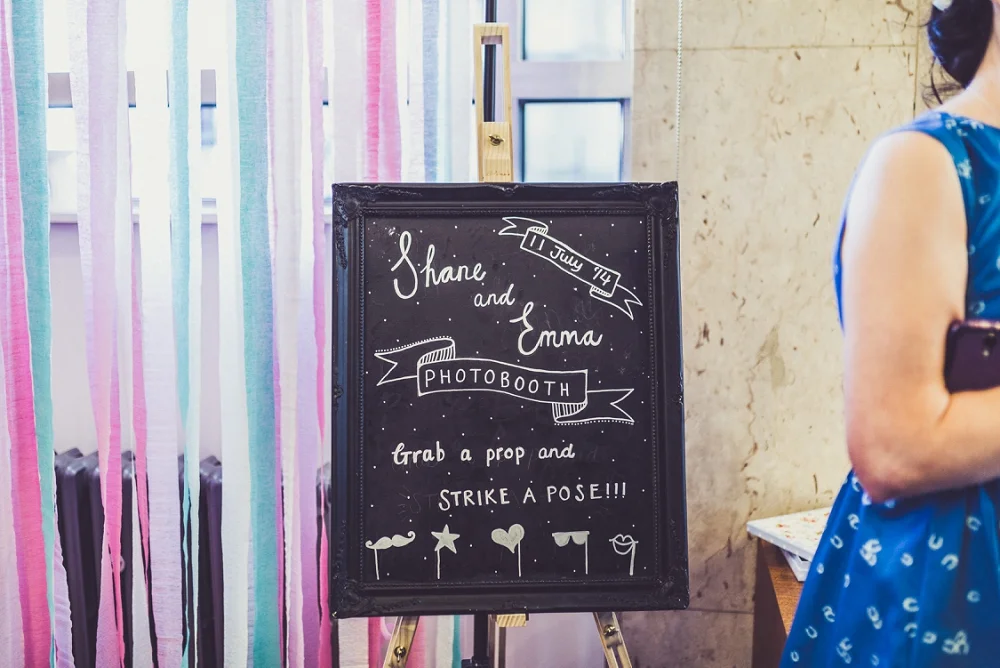 11 July '14
Shane
and
Emma
PHOTOBOOTH
Grab a prop and
STRIKE A POSE!!!